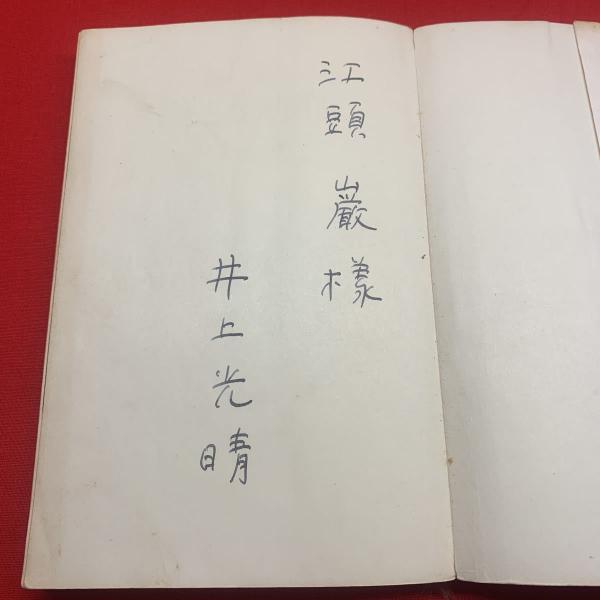 江頭 巌様
井上光晴